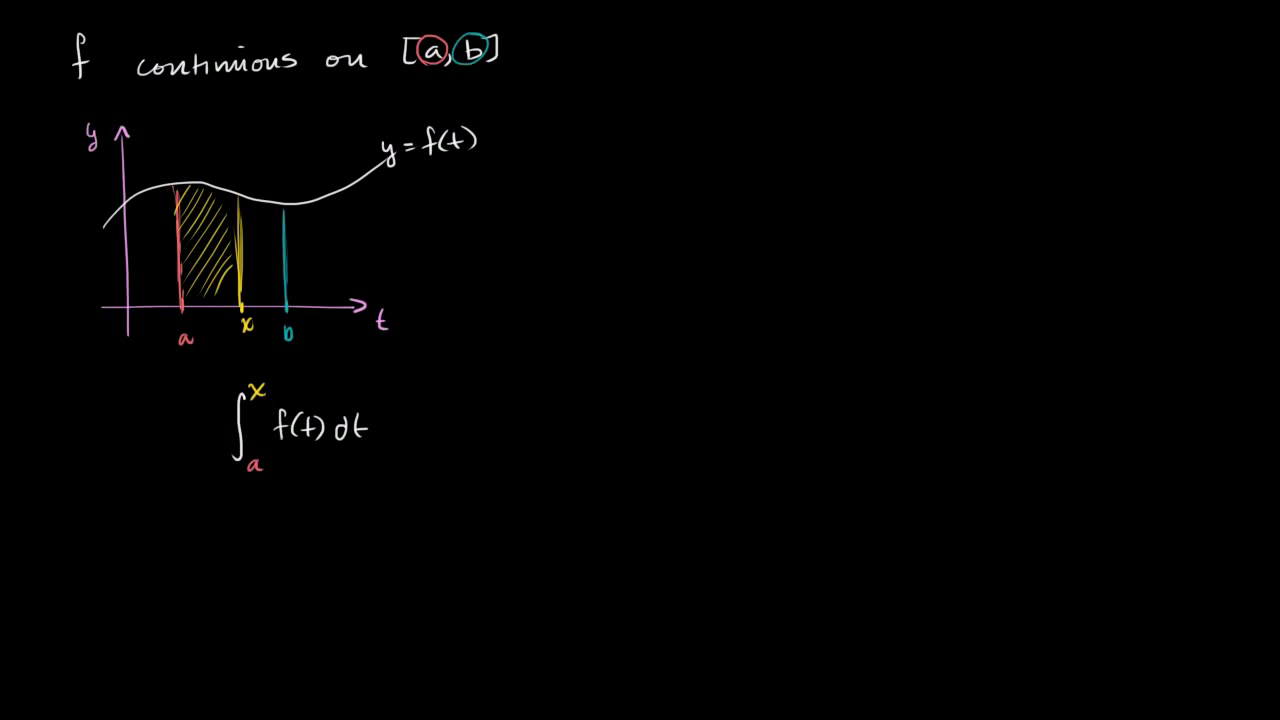 f continuous on [a, b]
y
y = f(t)
a x b t
∫ₐˣ f(t) dt